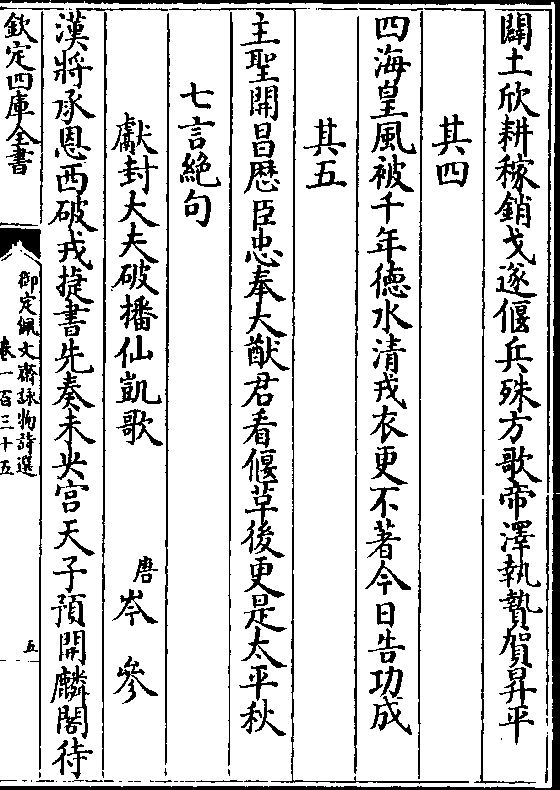 闢土欣耕稼銷戈遂偃兵殊方歌帝澤執贄賀昇平
其四
四海皇風被千年徳水清戎衣更不著今日告功成
其五
主聖開昌厯臣忠奉大猷君看偃草後更是太平秋
七言絶句
獻封大夫破播仙凱歌 唐岑參
漢將承恩西破戎捷書先奏未央宫天子預開麟閣待
欽定四庫全書
御定佩文齋詠物詩選
卷一百三十五
五